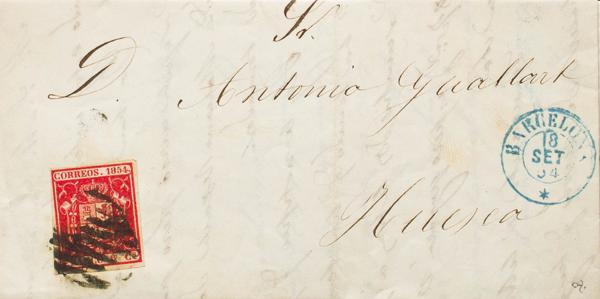 Sr.
D. Antonio Guallart
BARCELONA
18
SET
54
CORREOS. 1854.
Huesca